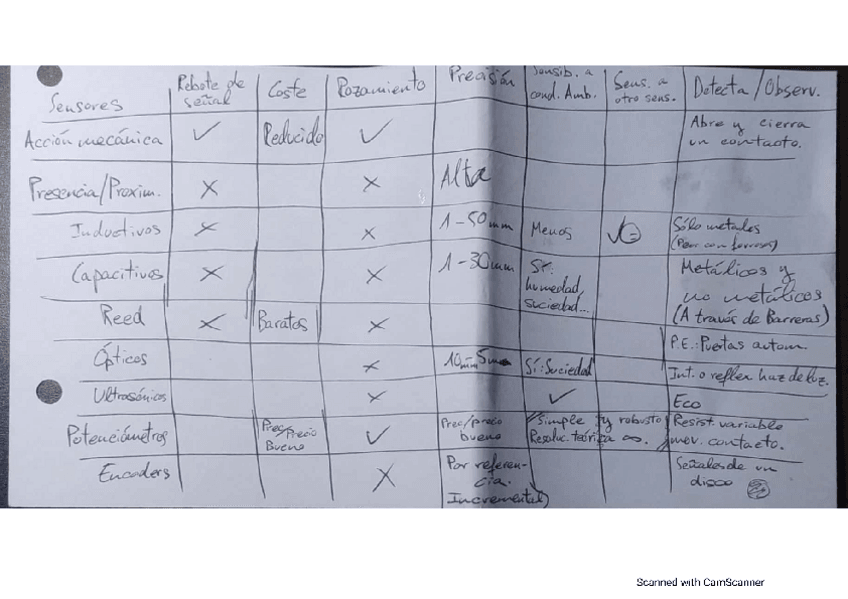 Sensores | Rebote de señal | Coste | Rozamiento | Precisión | Sensib. a cond. Amb. | Sens. a otro sens. | Detecta/Observ.
Acción mecánica | ✓ | Reducido | ✓ | | | | Abre y cierra un contacto.
Presencia/Proxim. | X | | X | Alta
Inductivos | X | | X | 1-50mm | Menos | ✓ | Sólo metales
Capacitivos | X | | X | 1-30mm | Sí: humedad, suciedad... | | Metálicos y no metálicos (A través de Barreras)
Reed | X | Baratos | X | | | | P.E.: Puertas autom.
Ópticos | | | X | 10mm-5m | Sí: Suciedad | | Int. o reflex haz de luz.
Ultrasónicos | | | X | | ✓ | | Eco
Potenciómetros | | Prec/Precio Bueno | ✓ | Prec/precio bueno | Simple y robusto Resoluc. teórica ∞. | | Resist. variable mov. contacto.
Encoders | | | X | Por referencia. Incremental) | | | Señales de un disco
Scanned with CamScanner